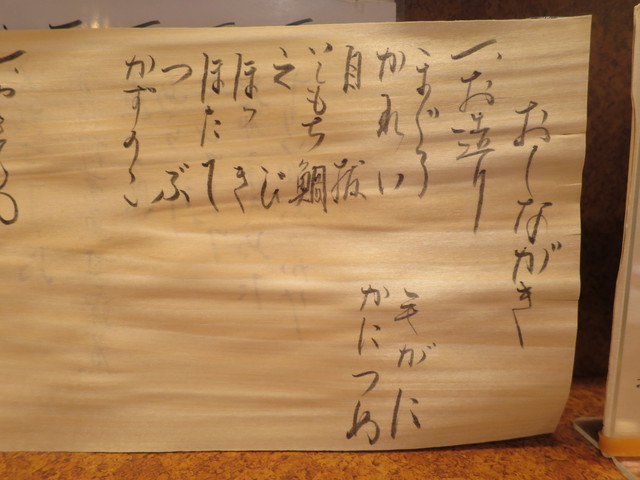 おしながき
一、お造り
まぐろ
かれい
目抜
いしもち鯛
えび
ほっき
ほたて
つぶ
かずのこ
毛がに
かにつめ